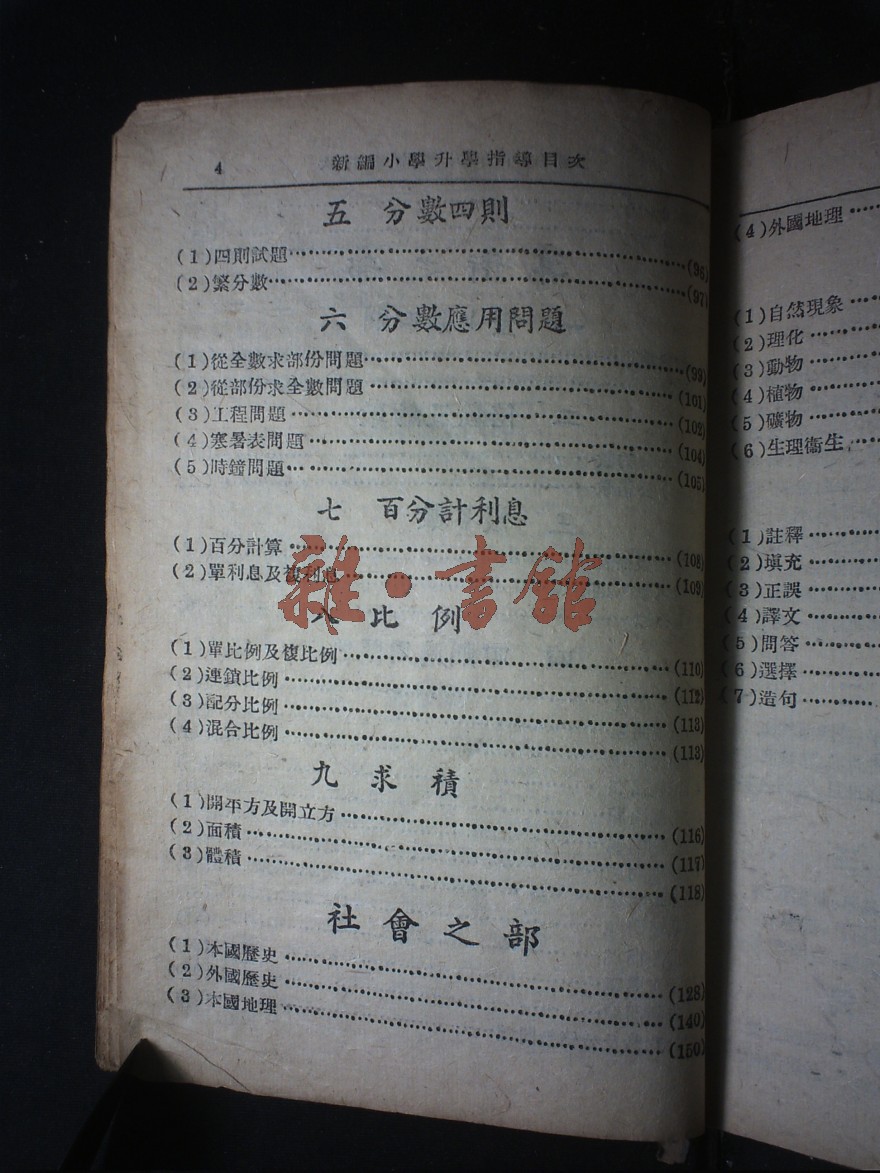 4 新編小學升學指導目次
五 分數四則
(1)四則試題……(96)
(2)繁分數……(97)
六 分數應用問題
(1)從全數求部份問題……(99)
(2)從部份求全數問題……(101)
(3)工程問題……(102)
(4)寒暑表問題……(104)
(5)時鐘問題……(105)
七 百分計利息
(1)百分計算……(108)
(2)單利息及複利息……(109)
八 比例
(1)單比例及複比例……(110)
(2)連鎖比例……(112)
(3)配分比例……(113)
(4)混合比例……(113)
九 求積
(1)開平方及開立方……(116)
(2)面積……(117)
(3)體積……(118)
社會之部
(1)本國歷史……(128)
(2)外國歷史……(140)
(3)本國地理……(150)
(4)外國地理……
(1)自然現象……
(2)理化……
(3)動物……
(4)植物……
(5)礦物……
(6)生理衞生……
(1)註釋……
(2)塡充……
(3)正誤……
(4)譯文……
(5)問答……
(6)選擇……
(7)造句……
雜·書館